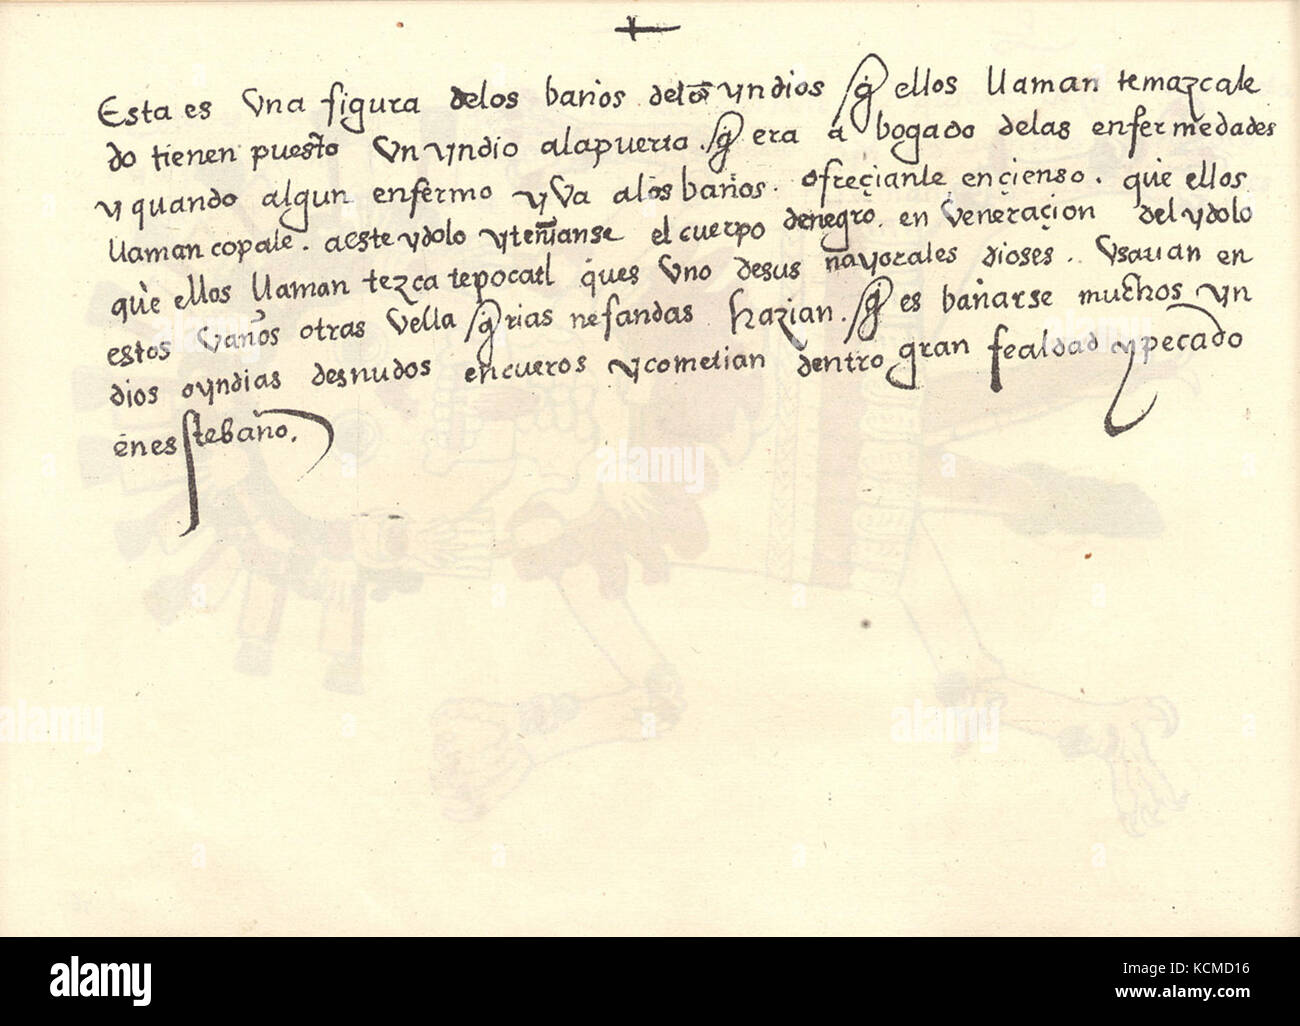 Esta es Una figura delos baños delos yndios q̃ ellos llaman temazcale
do tienen puesto Un yndio alapuerta. q̃ era abogado delas enfermedades
y quando algun enfermo yVa alos baños. ofreçianle ençienso. que ellos
llaman copale. aeste ydolo ytenianse el cuerpo denegro. en Veneraçion del ydolo
que ellos llaman tezcatepocatl ques Uno desus mayorales dioses. Usauan en
estos Vaños otras Vellaq̃rias nefandas hazian. q̃ es bañarse muchos yn
dios oyndias desnudos encueros ycometian dentro gran fealdad ypecado
enestebaño.
alamy
Image ID: KCMD16
www.alamy.com